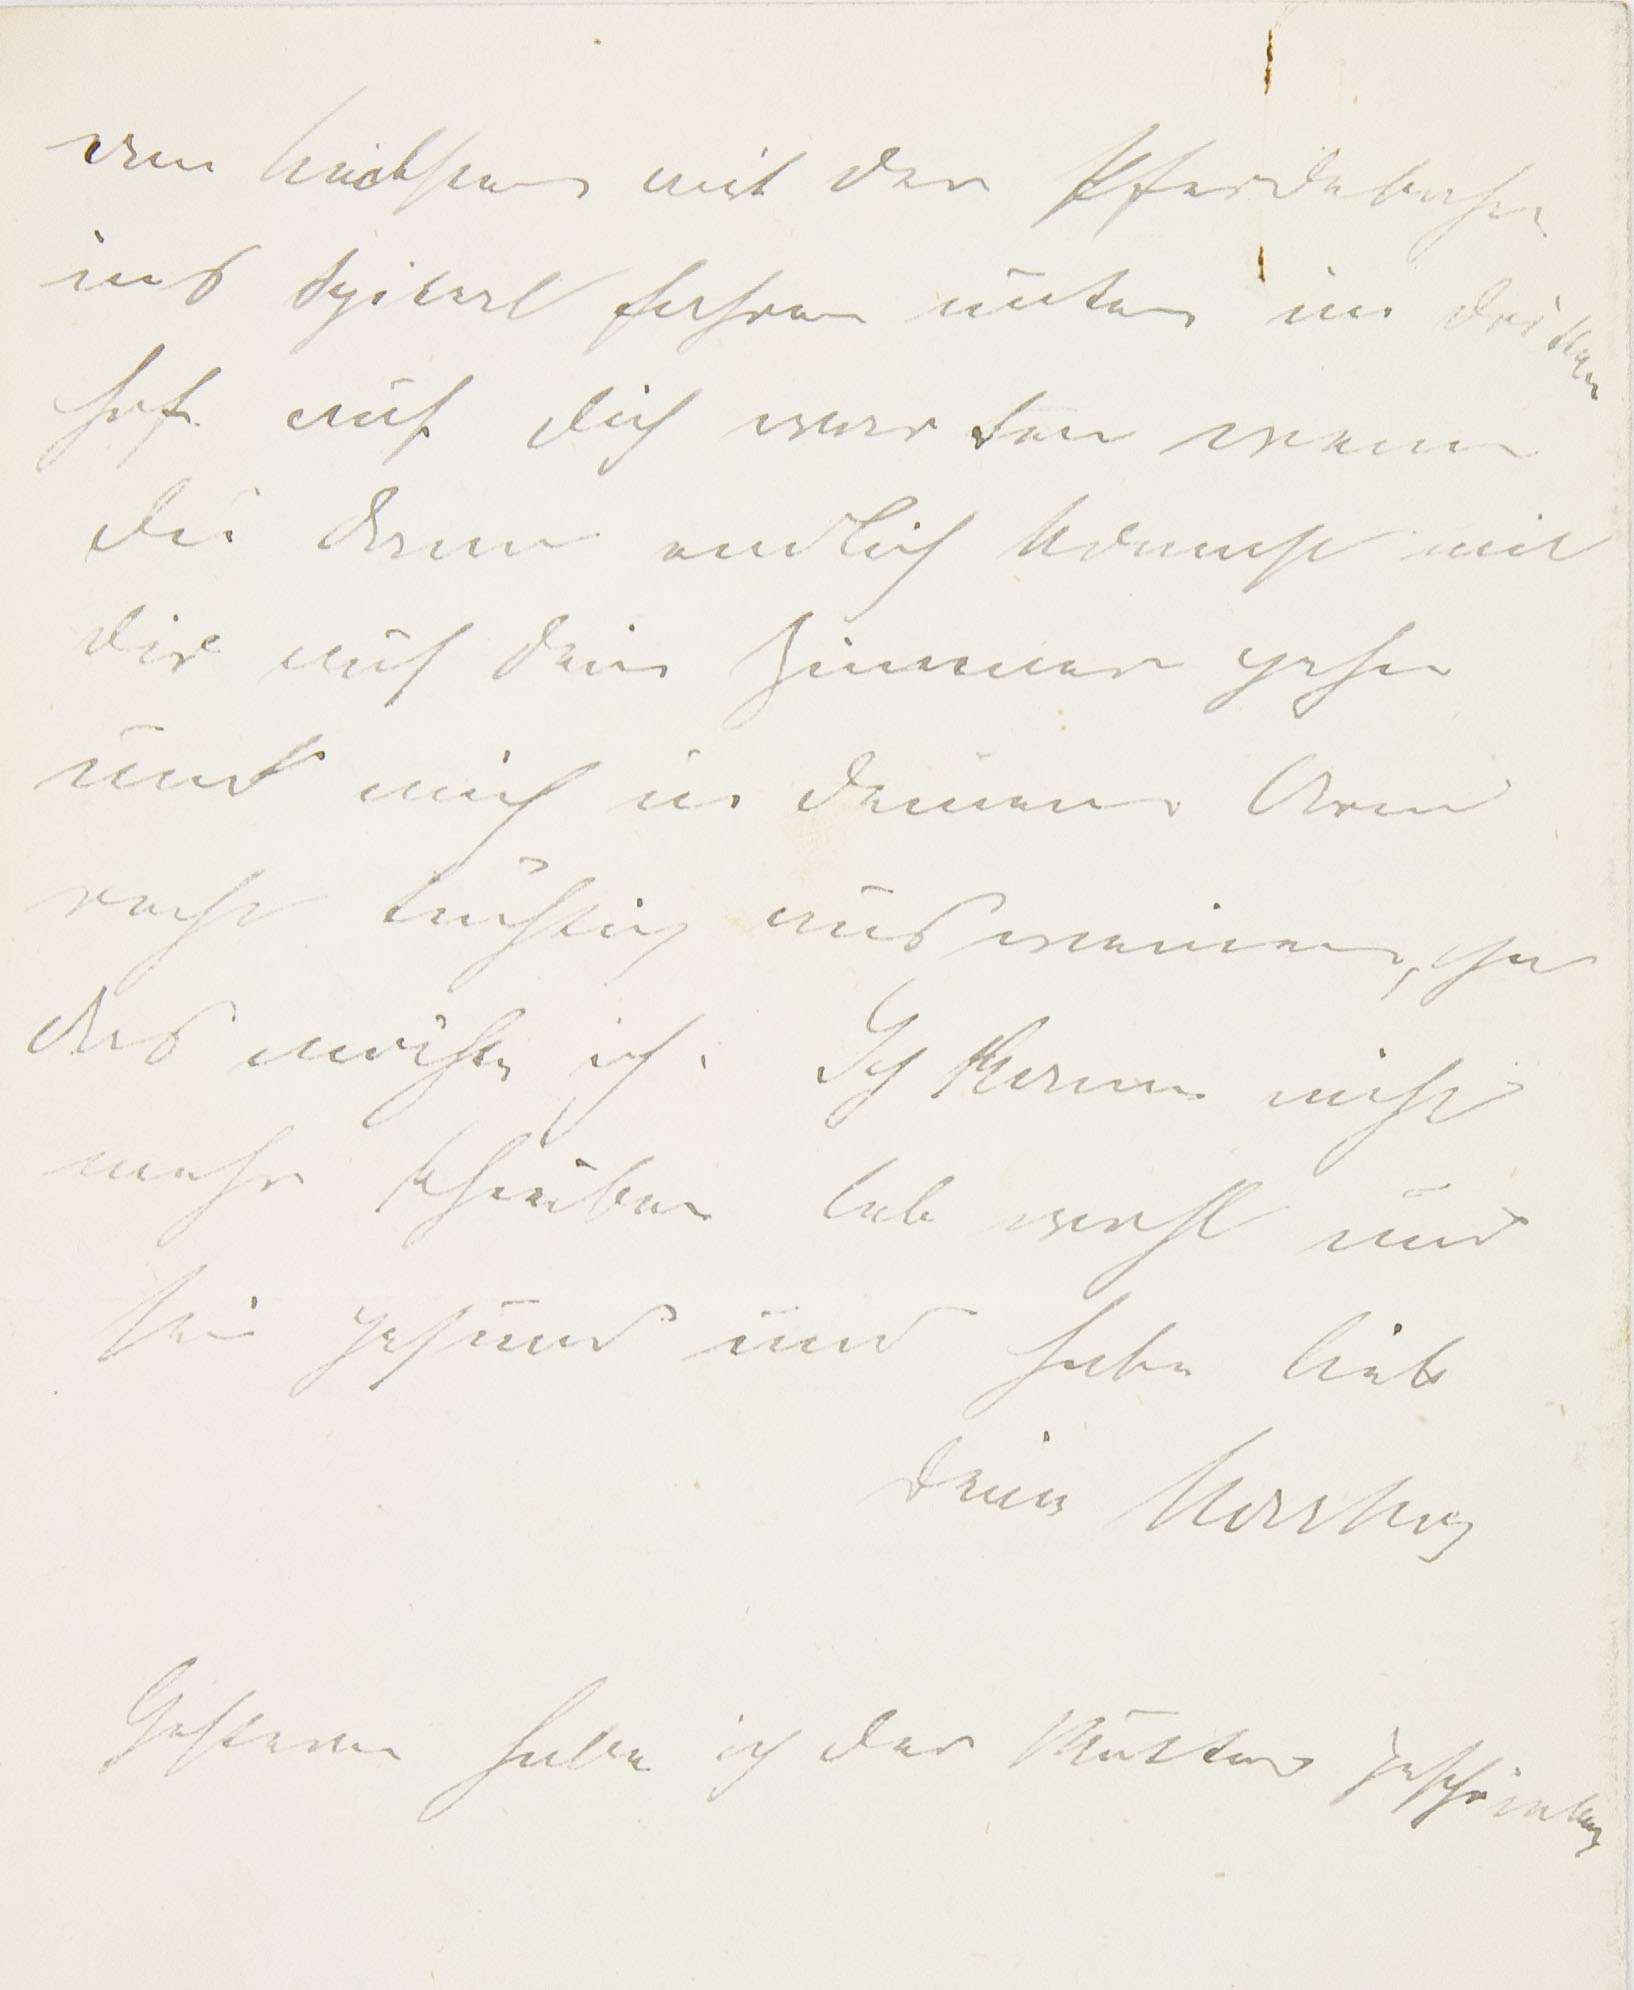 am liebsten mit der Pferdebahn
ins Spital fahren unten im dritten
Hof auf dich warten wenn
du dann endlich kommst mit
dir auf dein Zimmer gehn
und mich in deinem Arm
recht tüchtig ausweinen, ja
das möchte ich. Ich kann nicht
mehr schreiben leb wohl und
sei gesund und habe lieb
dein
Gestern habe ich der Mutter geschrieben